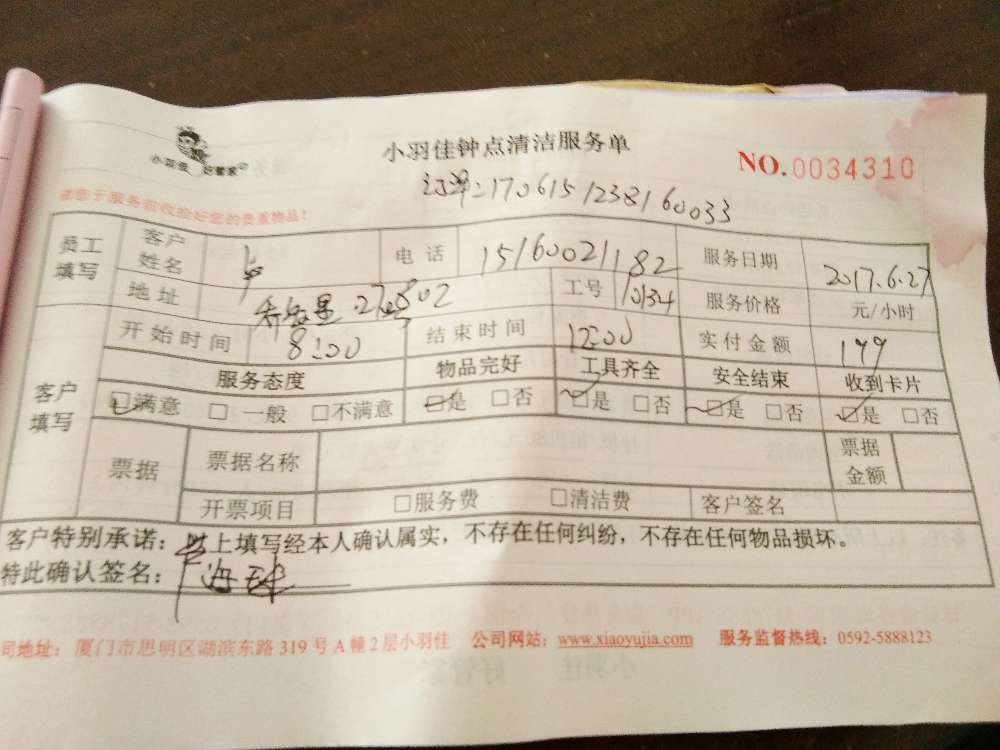 小羽佳 好管家
小羽佳钟点清洁服务单
NO.0034310
1706151238160033
请您于服务前收拾好您的贵重物品！
员工填写 客户姓名 电话 15160021182 服务日期 2017.6.27
地址 工号 10134 服务价格 元/小时
开始时间 8:00 结束时间 12:00 实付金额 149
客户填写 服务态度 物品完好 工具齐全 安全结束 收到卡片
☑满意 □一般 □不满意 ☑是 □否 ☑是 □否 ☑是 □否 ☑是 □否
票据 票据名称 票据金额
开票项目 □服务费 □清洁费 客户签名
客户特别承诺：以上填写经本人确认属实，不存在任何纠纷，不存在任何物品损坏。
特此确认签名：
司地址：厦门市思明区湖滨东路319号A幢2层小羽佳 公司网站：www.xiaoyujia.com 服务监督热线：0592-5888123